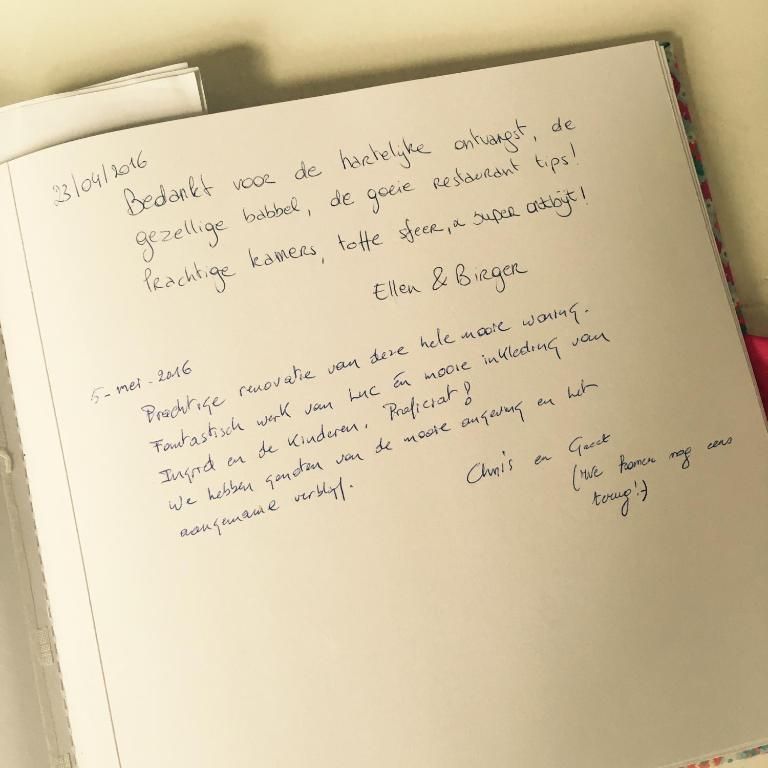 23/04/2016
Bedankt voor de hartelyke ontvangst, de
gezellige babbel, de goeie restaurant tips!
Prachtige kamers, toffe sfeer, & super ontbijt!
Ellen & Birger
5-mei-2016
Prachtige renovatie van deze hele mooie woning.
Fantastisch werk van Luc én mooie inkleding van
Ingrid en de kinderen. Proficiat!
We hebben genoten van de mooie omgeving en het
aangename verblijf.
Chris en Greet
(We komen nog eens
terug!:)